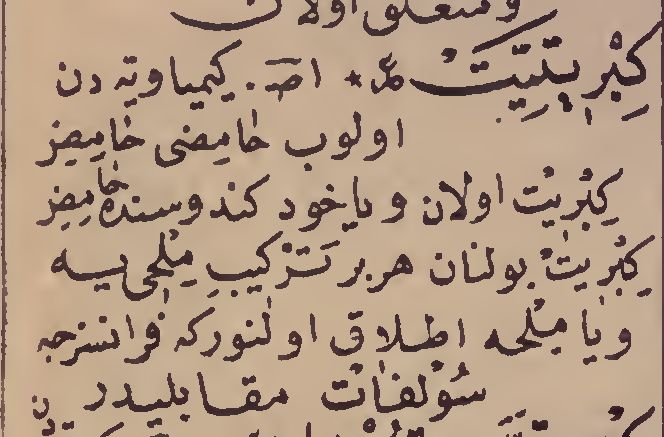 ومتعلق اولان
كِبْرِيتِيَّتْ اصـ. كيمياويه دن
اولوب حامِضى حامِض
كِبْرِيت اولان و ياخود كندوسنده حامِض
كِبْرِيتْ بولنان هر بر تَرْكيبِ مِلْحى يه
ويا مِلْحه اطلاق اولنور كه فرانسزجه
سُوْلفات مقابليدر